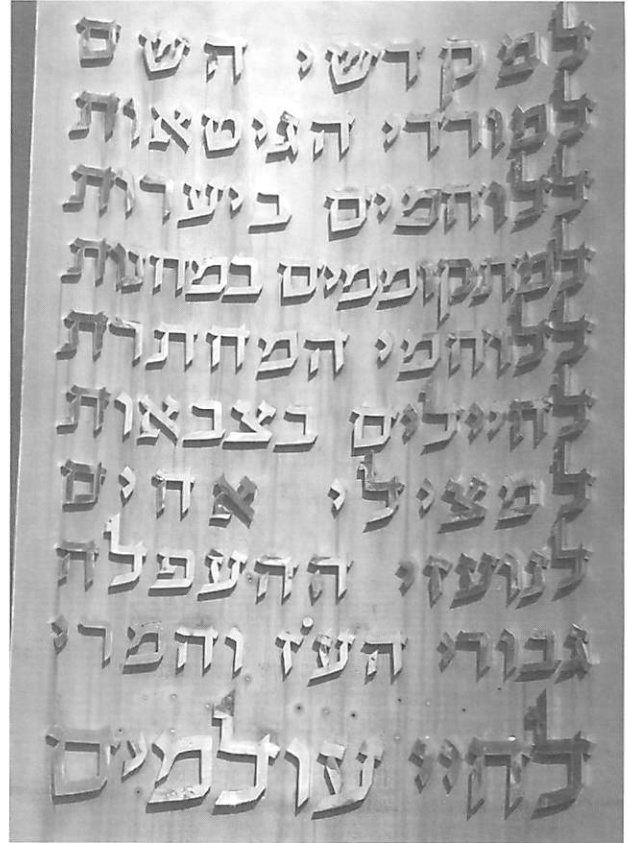 למקדשי השם
למורדי הגיטאות
ללוחמים ביערות
למתקוממים במחנות
ללוחמי המחתרת
לחיילים בצבאות
למצילי אחים
לנועזי ההעפלה
גבורי העֹז והמרי
לחיי עולמים